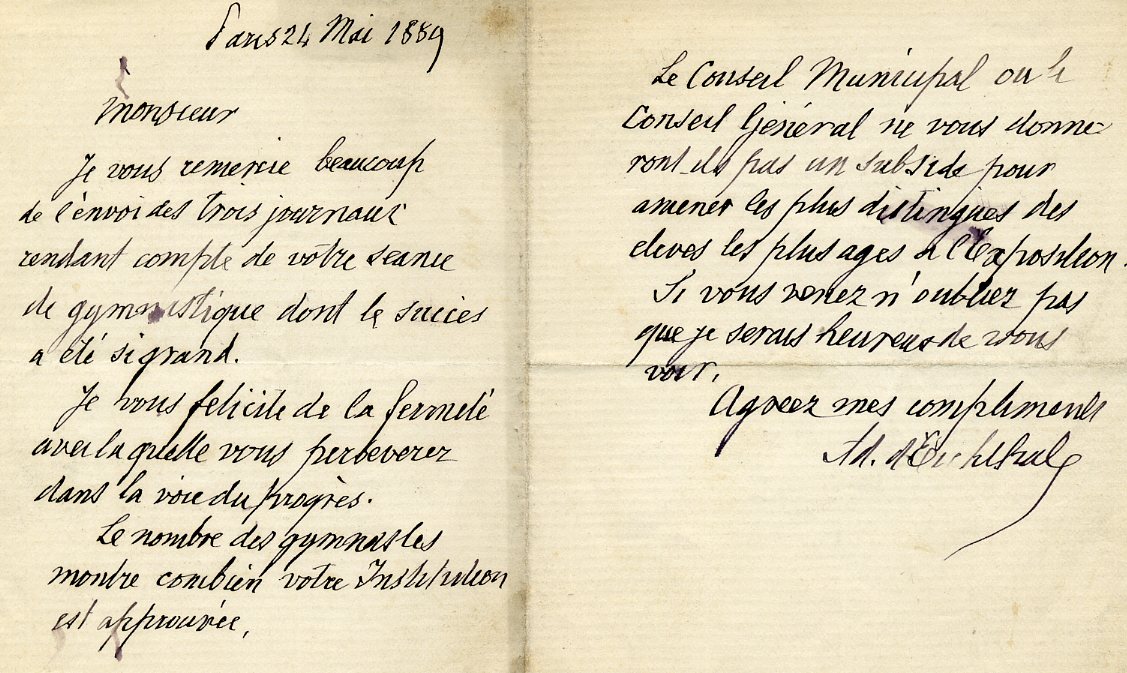 Paris 24 Mai 1889
Monsieur
Je vous remercie beaucoup
de l'envoi des trois journaux
rendant compte de votre seance
de gymnastique dont le succès
a été si grand.
Je vous félicite de la fermeté
avec laquelle vous perseverez
dans la voie du progrès.
Le nombre des gymnastes
montre combien votre Institution
est approuvée.
Le Conseil Municipal ou le
Conseil Général ne vous donne-
ront-ils pas un subside pour
amener les plus distingués des
eleves les plus ages a l'Exposition.
Si vous venez n'oubliez pas
que je serais heureux de vous
voir.
Agreez mes compliments
Ad. d'Eichthal